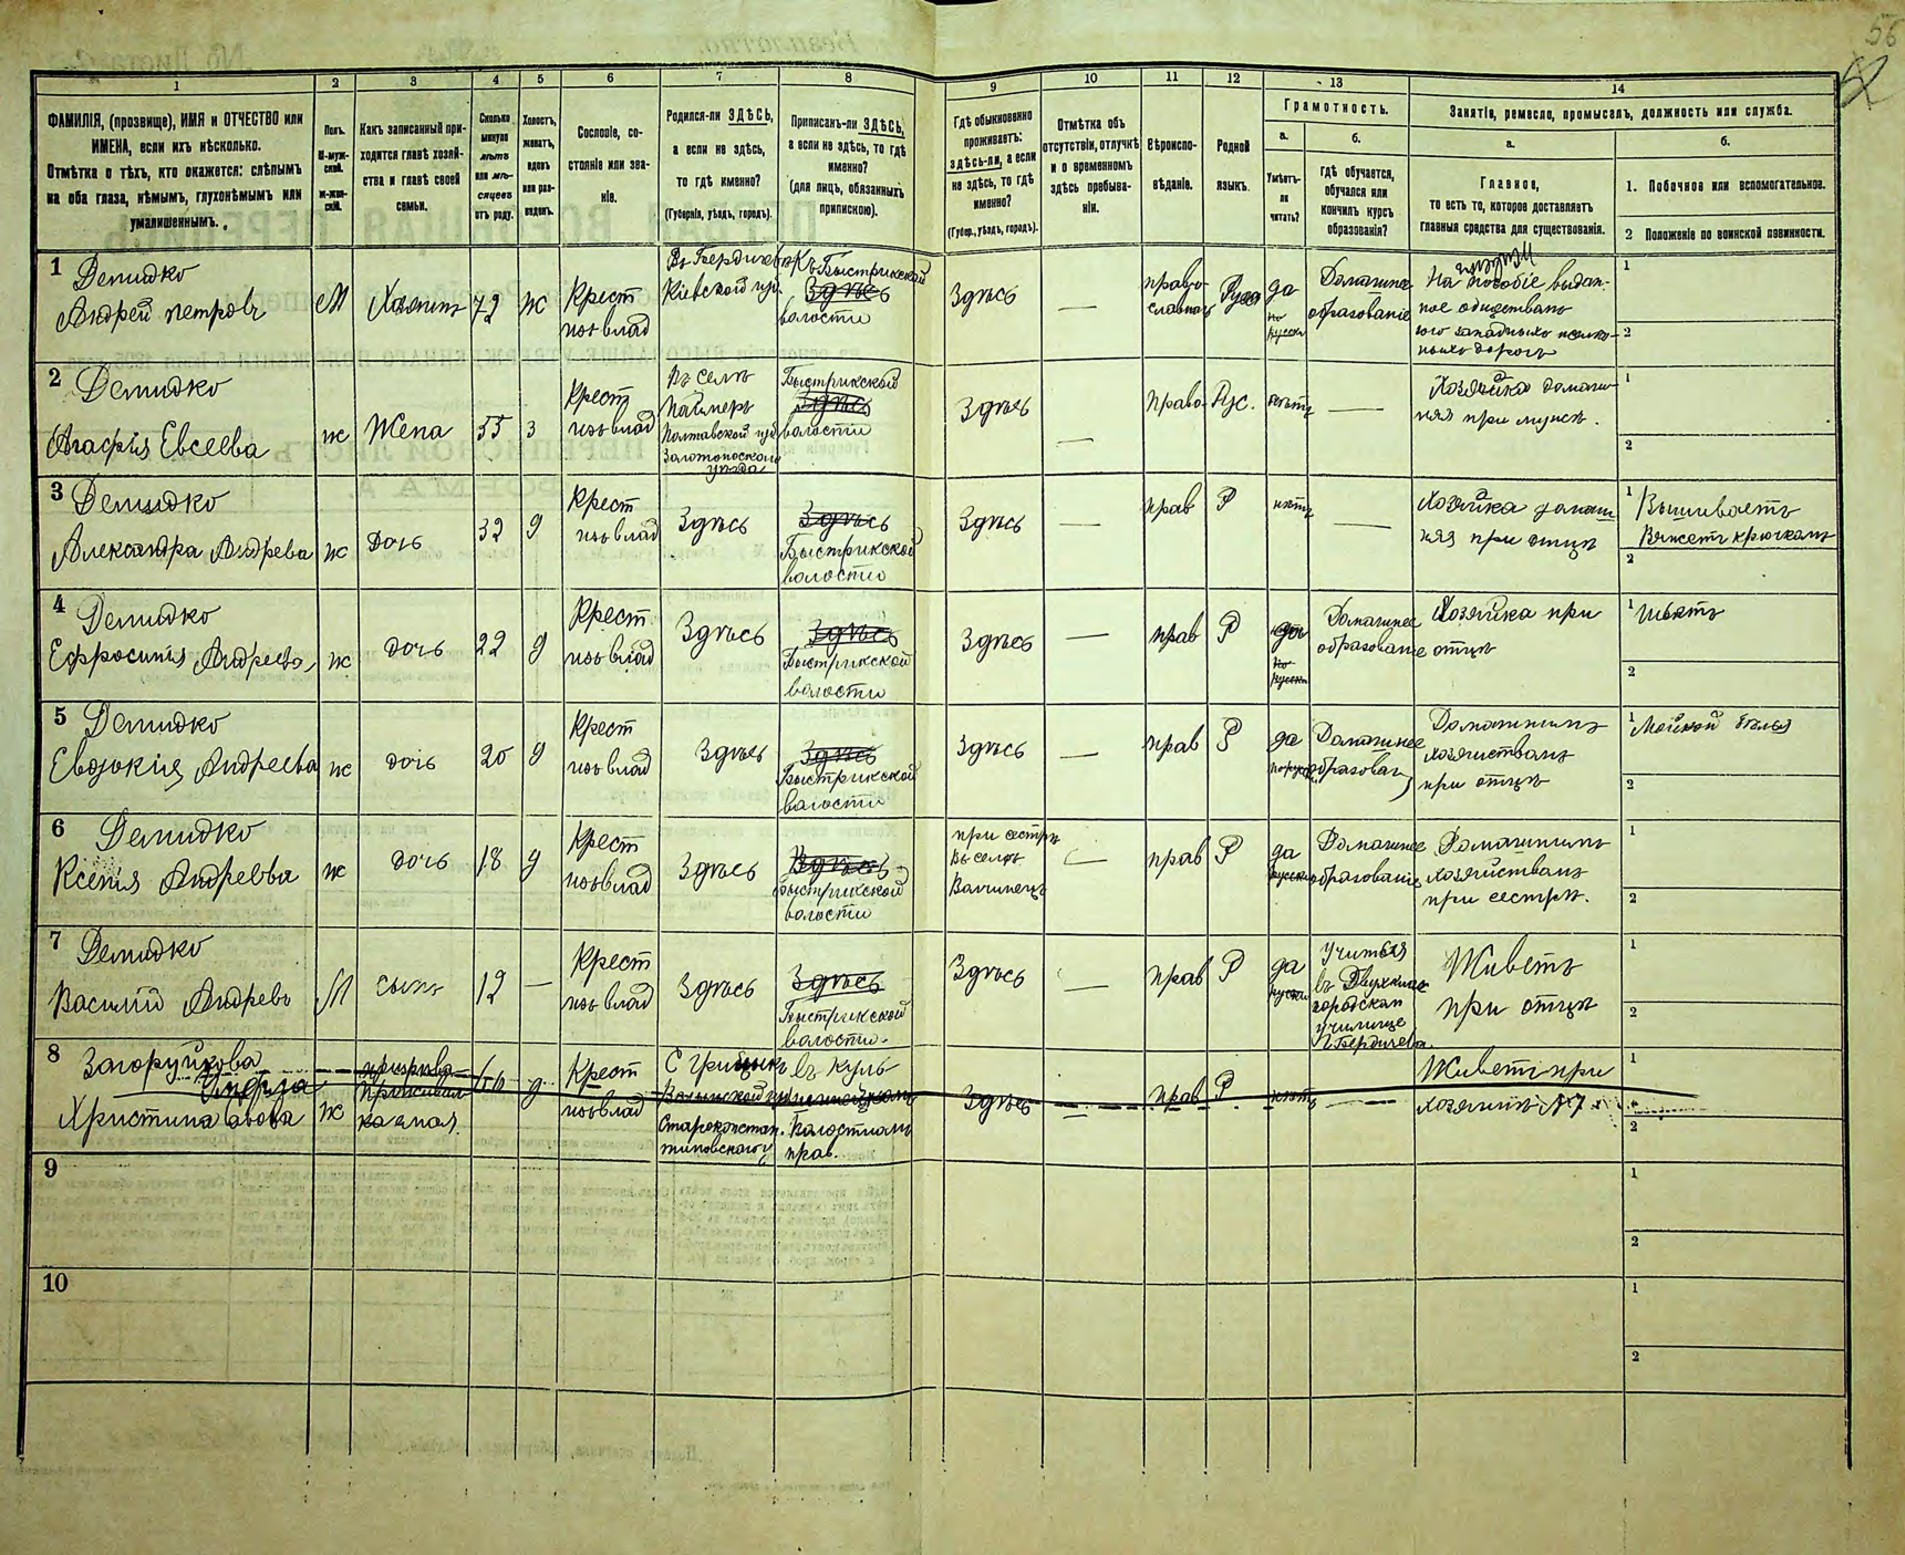 56
1
2
3
4
5
6
7
8
9
10
11
12
13
14
ФАМИЛІЯ, (прозвище), ИМЯ и ОТЧЕСТВО или
ИМЕНА, если ихъ нѣсколько.
Отмѣтка о тѣхъ, кто окажется: слѣпымъ
на оба глаза, нѣмымъ, глухонѣмымъ или
умалишеннымъ.
Полъ.
М-муж-
ской.
Ж-жен-
скій.
Какъ записанный при-
ходится главѣ хозяй-
ства и главѣ своей
семьи.
Сколько
минуло
лѣтъ
или мѣ-
сяцевъ
отъ роду.
Холостъ,
женатъ,
вдовъ
или раз-
веденъ.
Сословіе, со-
стояніе или зва-
ніе.
Родился-ли ЗДѢСЬ,
а если не здѣсь,
то гдѣ именно?
(Губернія, уѣздъ, городъ).
Приписанъ-ли ЗДѢСЬ,
а если не здѣсь, то гдѣ
именно?
(для лицъ, обязанныхъ
припискою).
Гдѣ обыкновенно
проживаетъ:
здѣсь-ли, а если
не здѣсь, то гдѣ
именно?
(Губер., уѣздъ, городъ).
Отмѣтка объ
отсутствіи, отлучкѣ
и о временномъ
здѣсь пребыва-
ніи.
Вѣроиспо-
вѣданіе.
Родной
языкъ.
Грамотность.
а.
Умѣетъ-
ли
читать?
б.
Гдѣ обучается,
обучался или
кончилъ курсъ
образованія?
Занятіе, ремесло, промыселъ, должность или служба.
а.
Главное,
то есть то, которое доставляетъ
главныя средства для существованія.
б.
1. Побочное или вспомогательное.
2 Положеніе по воинской повинности.
1
Демидко
Андрей Петровъ
М
Хозяинъ
72
ж
Крест
изъ влад
Въ Бердичевѣ
Кіевской губ.
Къ Быстрикской
Здѣсь
волости
Здѣсь
—
право-
славная
Русск
да
по
русски
Домашнее
образованіе
На пособіе выдан-
ное обществомъ
юго западныхъ желѣз-
ныхъ дорогъ
1
2
2
Демидко
Агафія Евсеева
ж
Жена
55
з
Крест
изъ влад
Въ селѣ
Полтавской губ
Золотоноскаго
уѣзда
Быстрикской
Здѣсь
волости
Здѣсь
—
Право
Рус.
нетъ
—
Хозяйка домаш-
няя при мужѣ.
1
2
3
Демидко
Александра Андрева
ж
Дочь
32
д
Крест
изъ влад
Здѣсь
Здѣсь
Быстрикской
волости
Здѣсь
—
прав
Р
нетъ
—
Хозяйка домаш
няя при отцѣ
1 Вышиваетъ
Вяжетъ крючкомъ
2
4
Демидко
Ефросинія Андрева
ж
дочь
22
д
Крест
изъ влад
Здѣсь
Здѣсь
Быстрикской
волости
Здѣсь
—
прав
Р
да
по
русски
Домашнее
образованіе
Хозяйка при
отцѣ
1 Шьетъ
2
5
Демидко
Евдокія Андреева
ж
дочь
20
д
Крест
изъ влад
Здѣсь
Здѣсь
Быстрикской
волости
Здѣсь
—
прав
Р
да
Домашнее
образован
Домашнимъ
хозяйствомъ
при отцѣ
1 Мойкой белья
2
6
Демидко
Ксенія Андреева
ж
дочь
18
д
Крест
изъ влад
Здѣсь
Здѣсь
Быстрикской
волости
при сестрѣ
Въ селѣ
—
прав
Р
да
русски
Домашнее
образованіе
Домашнимъ
хозяйствомъ
при сестрѣ.
1
2
7
Демидко
Василій Андревъ
М
сынъ
12
—
Крест
изъ влад
Здѣсь
Здѣсь
Быстрикской
волости.
Здѣсь
—
прав
Р
да
русски
Учиться
въ Двухклас
городском
училище
г. Бердичева.
Живетъ
при отцѣ
1
2
8
Загоруйкова
Христина
ж
66
д
Крест
изъ влад
Волынской губ
Староконстан-
тиновскаго у
Волостномъ
прав.
Здѣсь
—
прав
Р
нетъ
—
Живетъ при
хозяинѣ № 7
1
2
9
1
2
10
1
2